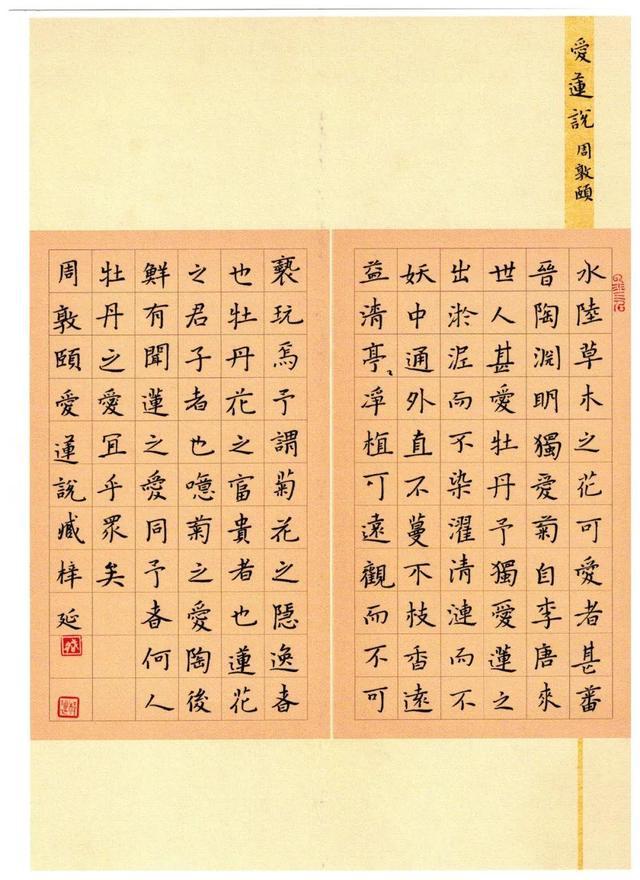 愛蓮說 周敦頤
水陸草木之花可愛者甚蕃
晉陶淵明獨愛菊自李唐來
世人甚愛牡丹予獨愛蓮之
出淤泥而不染濯清漣而不
妖中通外直不蔓不枝香遠
益清亭〻淨植可遠觀而不可
褻玩焉予謂菊花之隱逸者
也牡丹花之富貴者也蓮花
之君子者也噫菊之愛陶後
鮮有聞蓮之愛同予者何人
牡丹之愛宜乎眾矣
周敦頤愛蓮說臧梓延